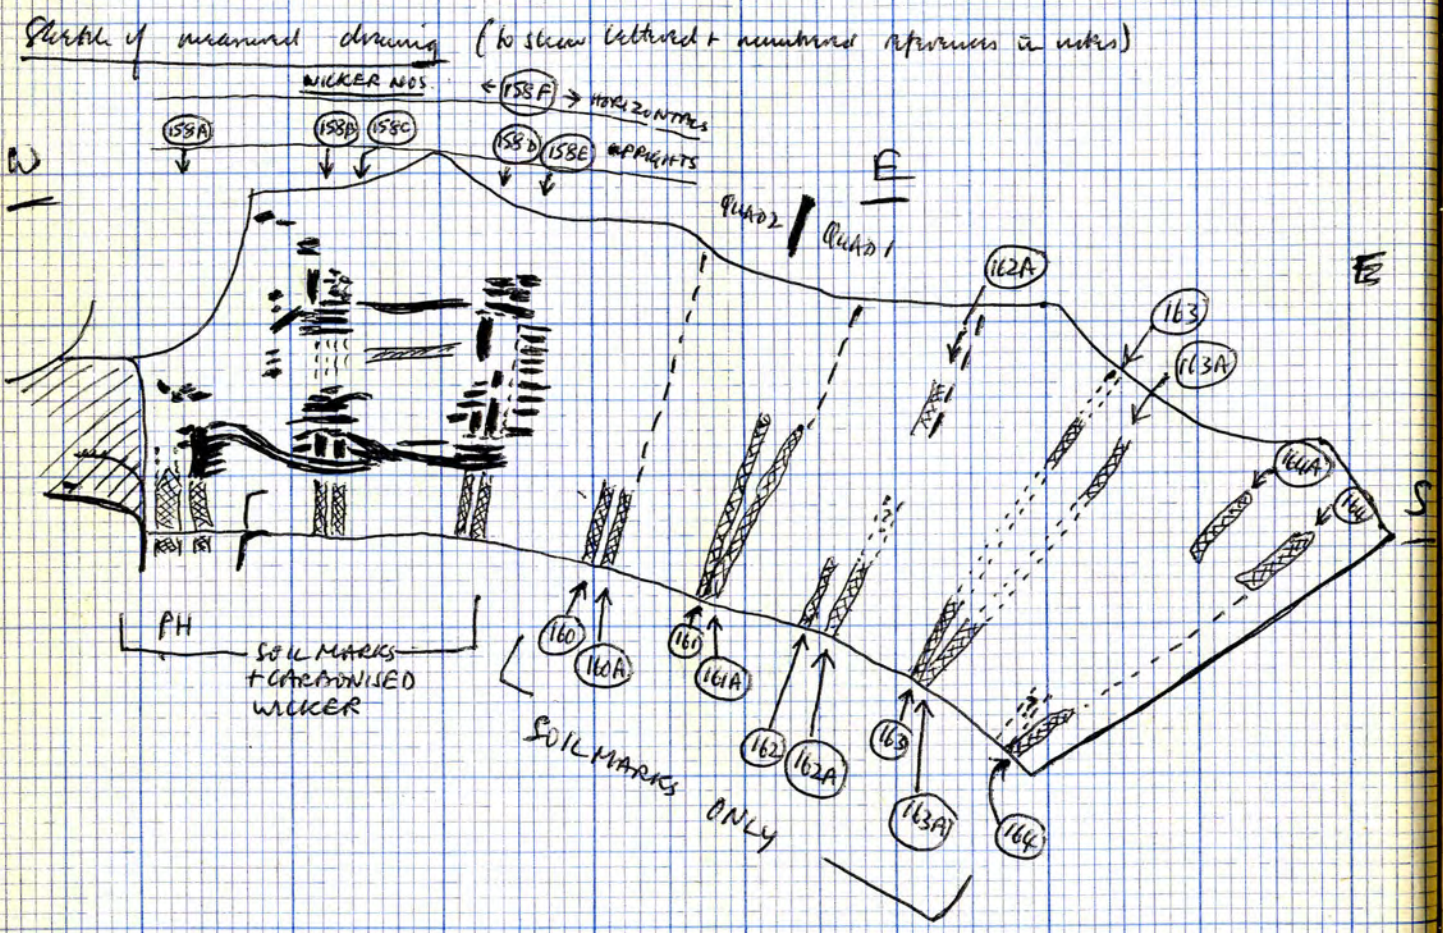 Sketch of measured drawing (to show lettered + numbered references in notes)
WICKER NOS. ← 158F → HORIZONTALS
158A 158B 158C 158D 158E UPRIGHTS
W
E
QUAD2 QUAD1
162A
E
163
163A
164A
164
S
PH
SOIL MARKS
+ CARBONISED
WICKER
160
160A
161
161A
162
162A
163
163A
164
SOILMARKS ONLY